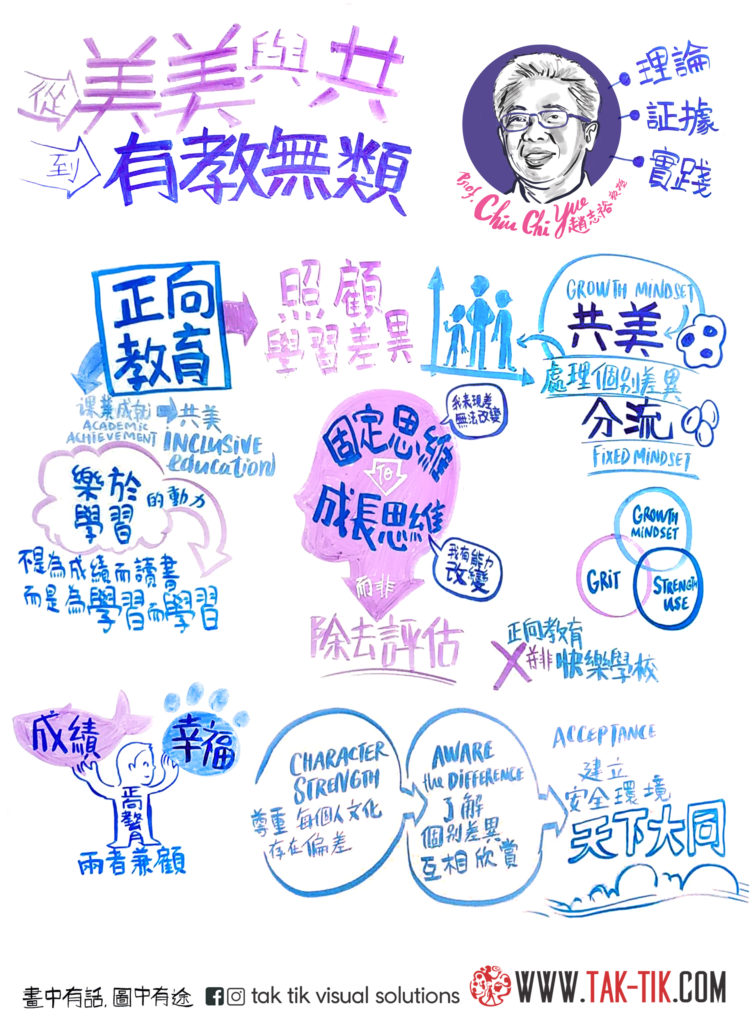 從 美美與共
到 有教無類
理論
証據
實踐
Prof. Chiu Chi Yue
趙志裕教授
正向
教育
照顧
學習差異
GROWTH MINDSET
共美
處理個別差異
分流
FIXED MINDSET
课業成就 共美
ACADEMIC
ACHIEVEMENT
INCLUSIVE
education
樂於
學習 的動力
不是為成績而讀書
而是為學習而學習
我表現差
無法改變
固定思維
TO
成長思維
我有能力
改變
而非
除去評估
GROWTH
MINDSET
GRIT
STRENGTH
USE
正向教育
並非 快樂學校
成績
幸福
兩者兼顧
CHARACTER
STRENGTH
尊重 每個人文化
存在偏差
AWARE
the DIFFERENCE
了解
個別差異
互相欣賞
ACCEPTANCE
建立
安全環境
天下大同
畫中有話, 圖中有途 tak tik visual solutions WWW.TAK-TIK.COM